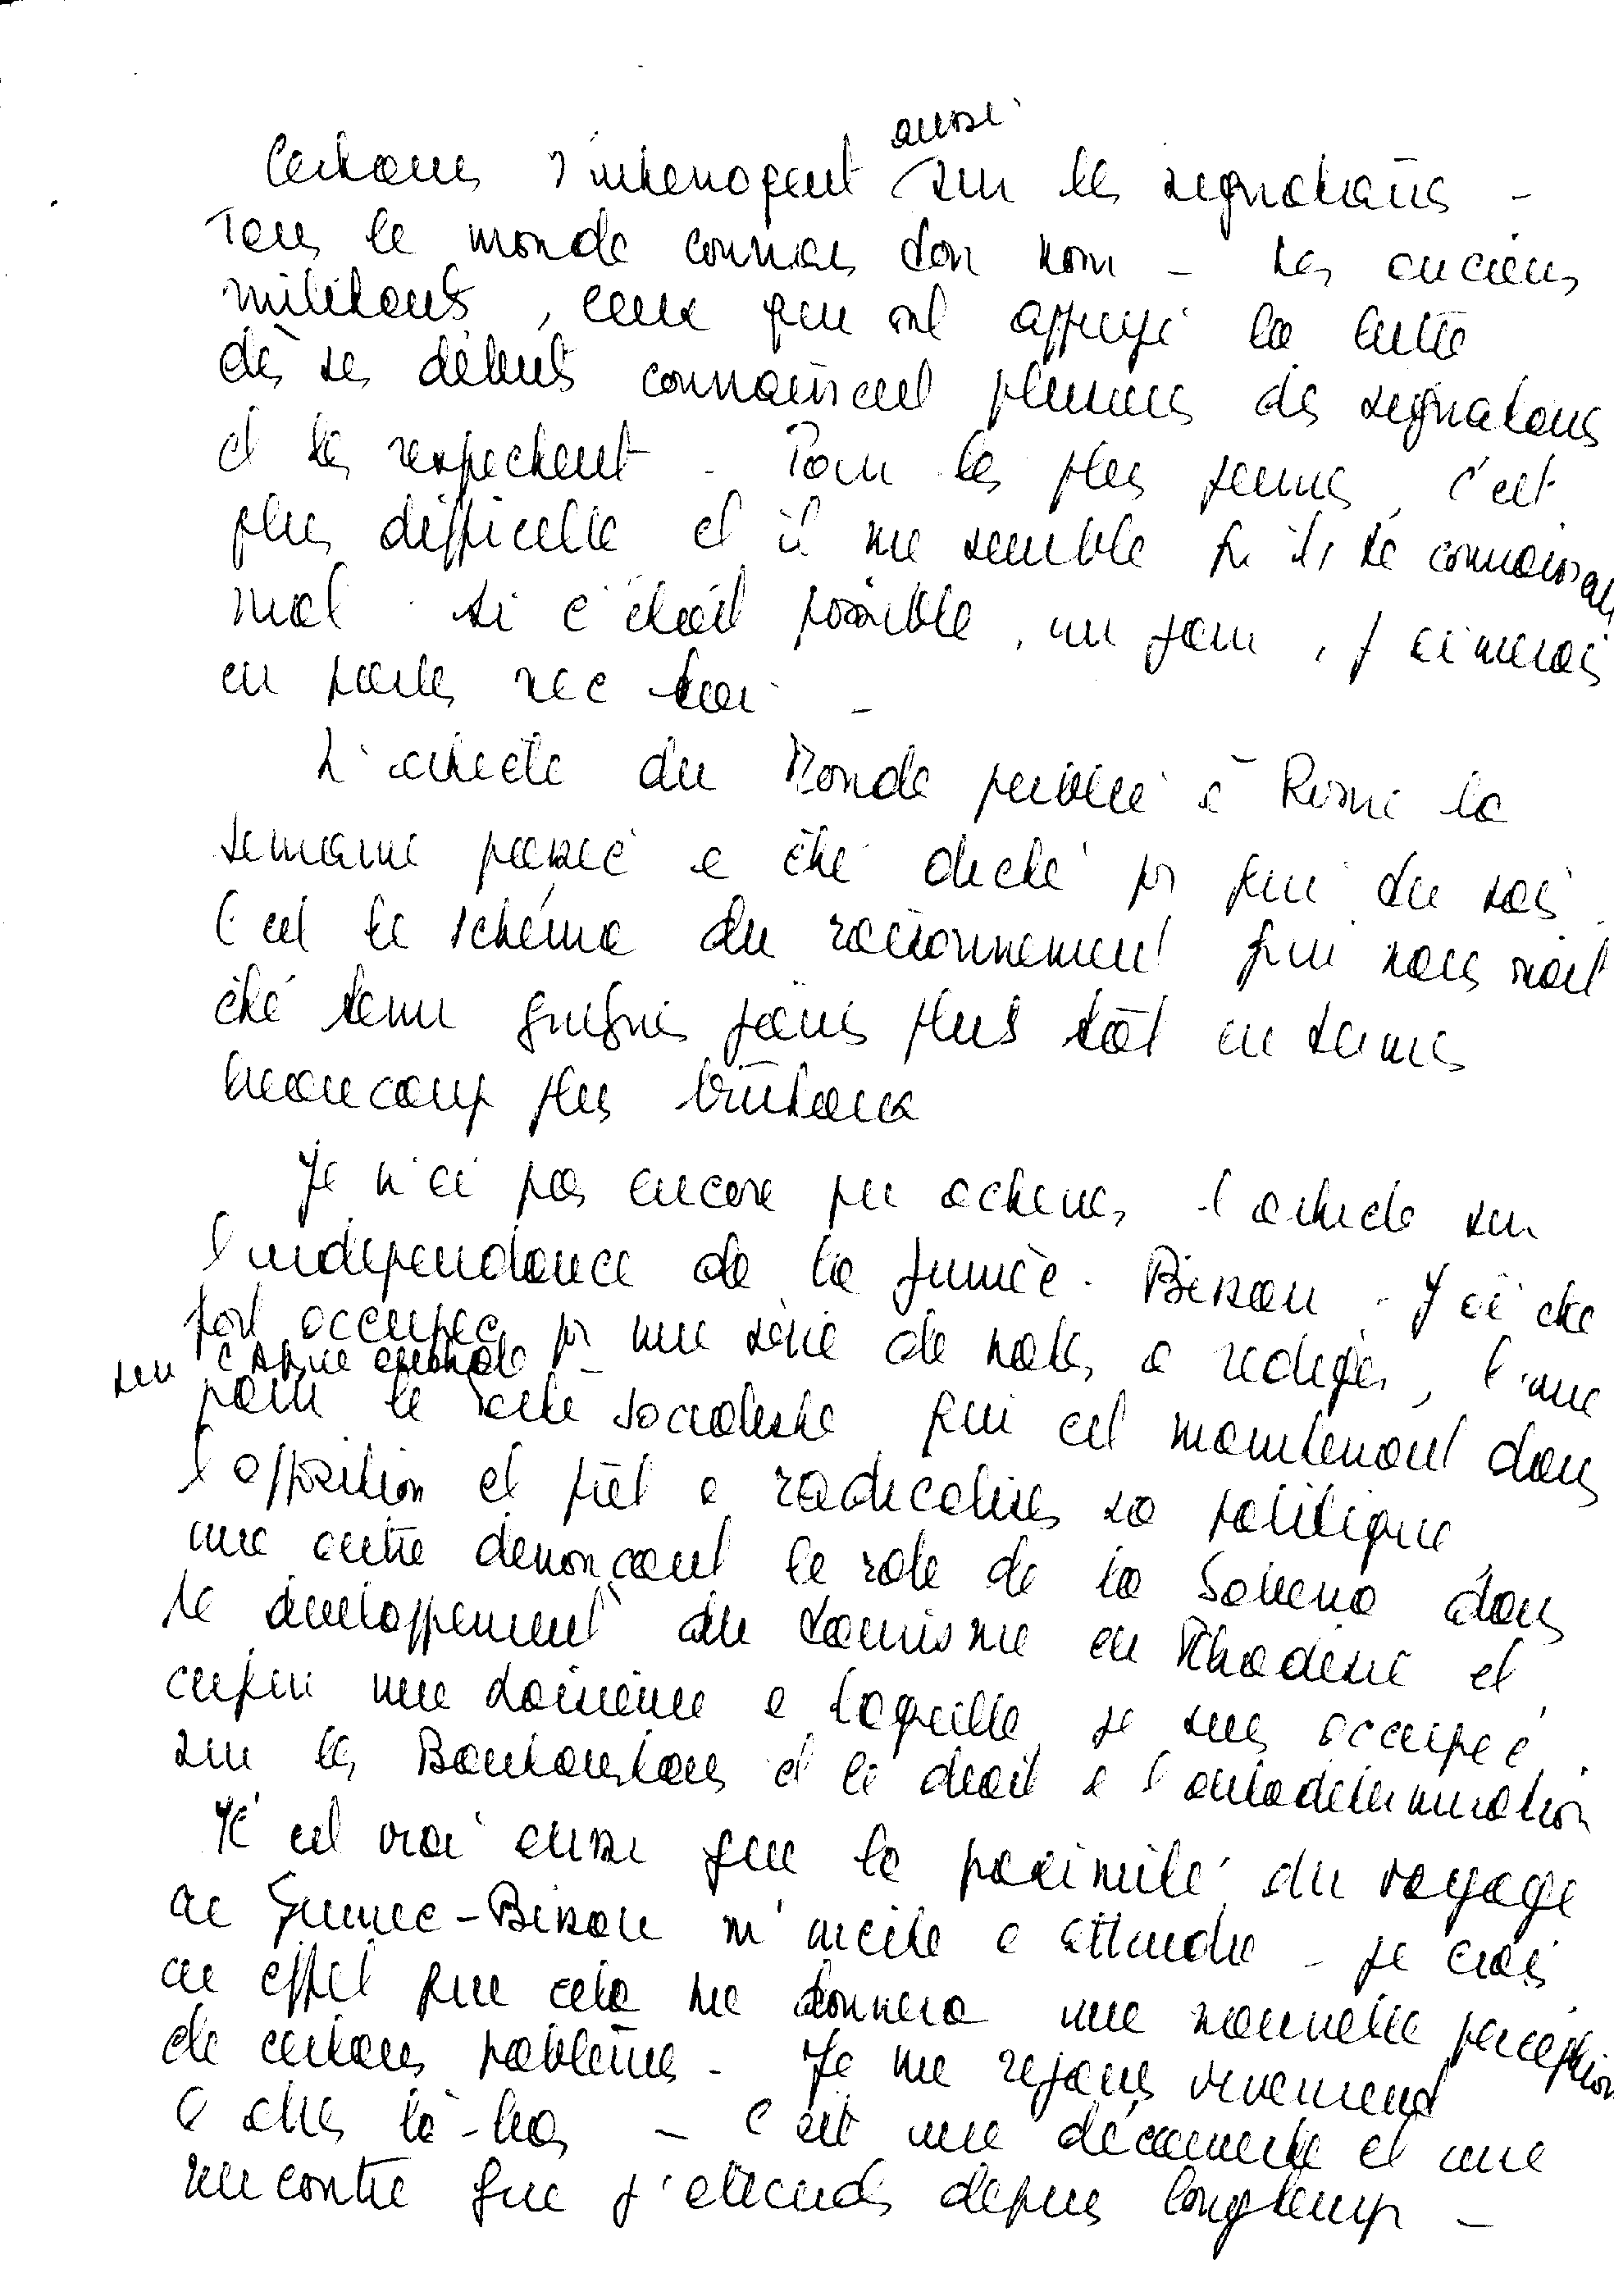 aussi
Certains s'interrogent sur les signataires -
Tout le monde connais ton nom - Les anciens
militants, ceux qui ont appuyé la lutte
dès ses débuts connaissent plusieurs des signataires
et les respectent. Pour les plus jeunes, c'est
plus difficile et il me semble qu'ils te connaissent
mal. Si c'était possible, un jour, j'aimerais
en parler avec toi -
L'article du Monde publié à Rome la
semaine passée a été dicté par qui tu sais.
C'est le schéma du raisonnement qui nous avait
été tenu quelques jours plus tôt en termes
beaucoup plus brutaux
Je n'ai pas encore pu achever l'article sur
l'indépendance de la Guinée-Bissau. J'ai été
fort occupée par une série de notes à rédiger, l'une
sur l'Afrique australe
pour le Parti socialiste qui est maintenant dans
l'opposition et prêt à radicaliser sa politique
une autre dénonçant le rôle de la Sabena dans
le développement du tourisme en Rhodésie et
enfin une troisième à laquelle je suis occupée
sur les Bantoustans et le droit à l'autodétermination
Il est vrai aussi que la proximité du voyage
en Guinée-Bissau m'incite à attendre - Je crois
en effet que cela me donnera une nouvelle perception
de certains problèmes - Je me réjouis vivement
d'aller là-bas - C'est une découverte et une
rencontre que j'attends depuis longtemps -